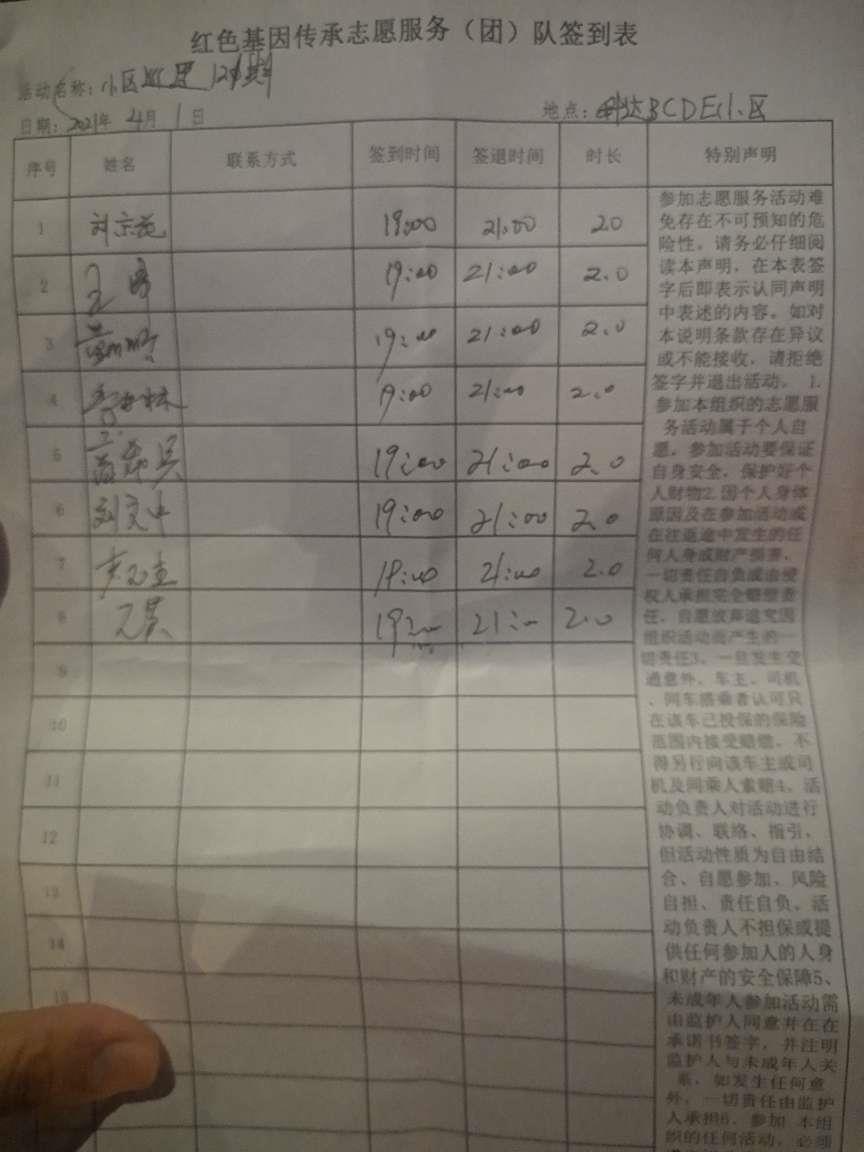 红色基因传承志愿服务（团）队签到表
活动名称：小区巡逻 12期
日期：2021年 4月 1日
地点： BCDE小区
序号 姓名 联系方式 签到时间 签退时间 时长 特别声明
1 19:00 21:00 2.0
2 19:00 21:00 2.0
3 19:00 21:00 2.0
4 19:00 21:00 2.0
5 19:00 21:00 2.0
6 刘文中 19:00 21:00 2.0
7 19:00 21:00 2.0
8 19:00 21:00 2.0
9
10
11
12
13
14
15
参加志愿服务活动难
免存在不可预知的危
险性。请务必仔细阅
读本声明，在本表签
字后即表示认同声明
中表述的内容。如对
本说明条款存在异议
或不能接收，请拒绝
签字并退出活动。 1.
参加本组织的志愿服
务活动属于个人自
愿，参加活动要保证
自身安全，保护好个
人财物2.因个人身体
原因及在参加活动或
在往返途中发生的任
何人身或财产损害，
一切责任自负或由侵
权人承担完全赔偿责
任，自愿放弃追究因
组织活动而产生的一
切责任3、一旦发生交
通意外，车主、司机
、同车搭乘者认可只
在该车已投保的保险
范围内接受赔偿，不
得另行向该车主或司
机及同乘人索赔4、活
动负责人对活动进行
协调、联络、指引，
但活动性质为自由结
合、自愿参加、风险
自担、责任自负。活
动负责人不担保或提
供任何参加人的人身
和财产的安全保障5、
未成年人参加活动需
由监护人同意并在在
承诺书签字，并注明
监护人与未成年人关
系，如发生任何意
外，一切责任由监护
人承担6、参加 本组
织的任何活动，必须